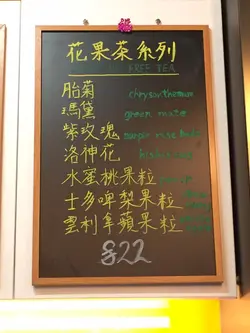 花果茶系列
FREE TEA
胎菊 chrysanthemum
瑪黛 green mate
紫玫瑰 purple rose buds
洛神花
水蜜桃果粒
士多啤梨果粒
雲利拿蘋果粒
$22